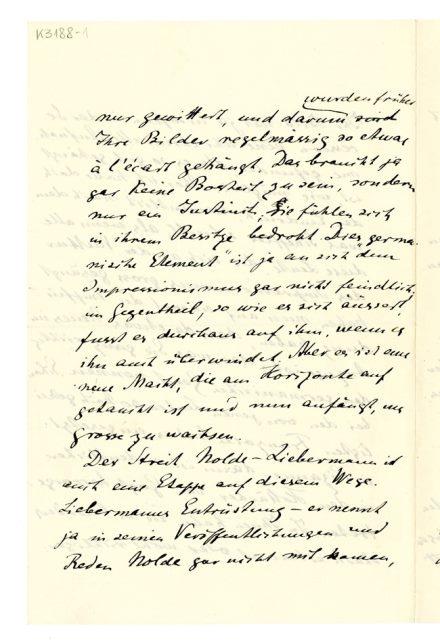 K3188-1
wurden früher
nur gewittert, und darum sind
Ihre Bilder regelmässig so etwas
à l'écart gehängt. Das braucht ja
gar keine Bosheit zu sein, sondern
nur ein Instinct; Sie fühlen sich
in ihrem Besitze bedroht. Dies „germa-
nische Element" ist ja an sich dem
Impressionismus gar nicht feindlich,
im Gegentheil, so wie es sich äussert,
fusst es durchaus auf ihm, wenn es
ihn auch überwindet. Aber es ist eine
neue Macht, die am Horizonte auf
getaucht ist und nun anfängt, 
grosse zu wachsen.
Der Streit Nolde-Liebermann ist
auch eine Etappe auf diesem Wege.
Liebermanns Entrüstung - er nennt
ja in seinen Veröffentlichungen und
Reden Nolde gar nicht mit Namen,